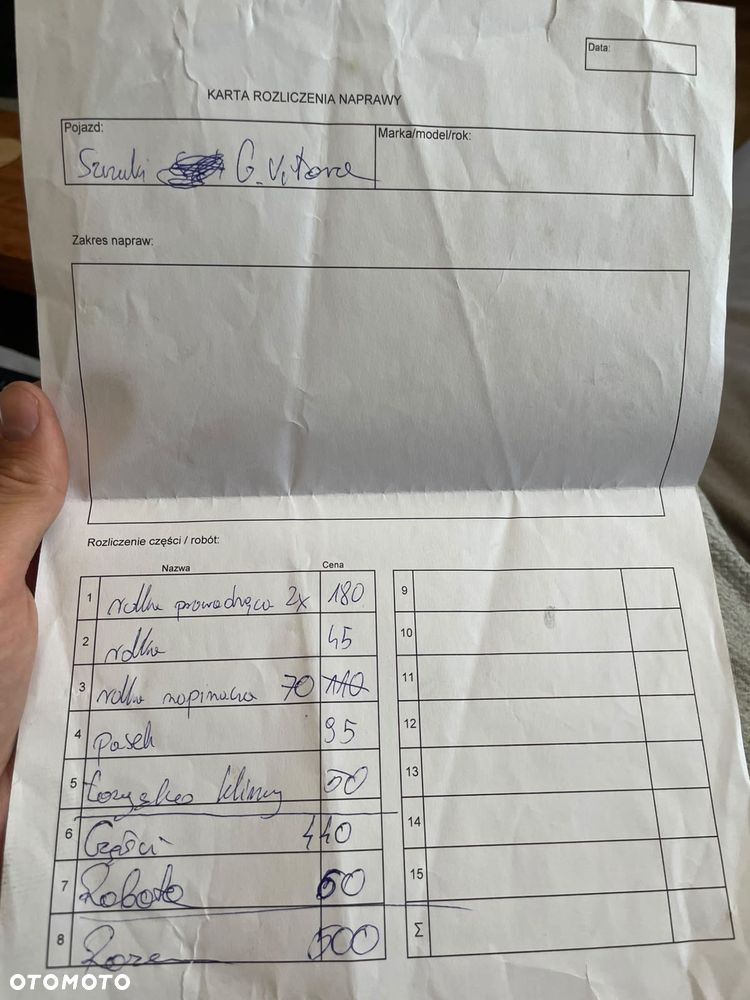 Data:
KARTA ROZLICZENIA NAPRAWY
Pojazd:
Marka/model/rok:
Suzuki G. Vitara
Zakres napraw:
Rozliczenie części / robót:
Nazwa Cena
1 rolka prowadząca 2x 180
2 rolka 45
3 rolka napinacza 70 110
4 pasek 95
5 łożysko klimy 50
6 Części 440
7 Robota 60
8 Razem 500
9
10
11
12
13
14
15
Σ
OTOMOTO